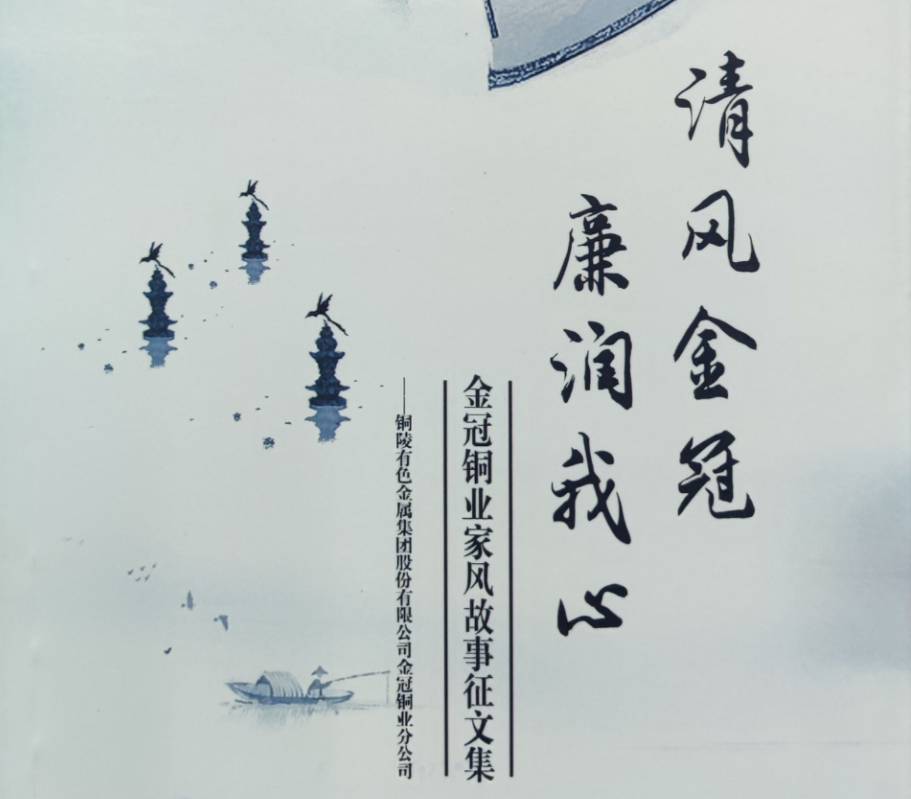 清风金冠
廉润我心
金冠铜业家风故事征文集
——铜陵有色金属集团股份有限公司金冠铜业分公司